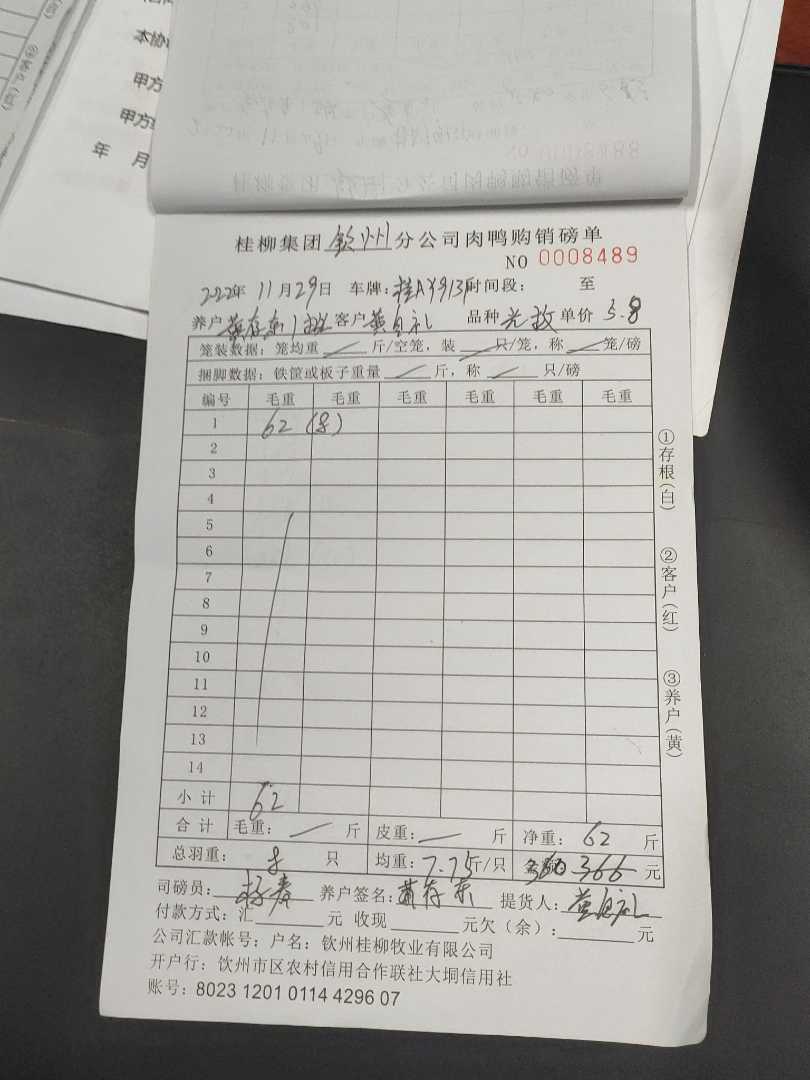 本协
甲方
甲方
年 月
桂柳集团 钦州 分公司肉鸭购销磅单
NO 0008489
2022年 11月29日 车牌: 时间段: 至
养户 客户 黄自礼 品种 单价 5.8
笼装数据: 笼均重 斤/空笼, 装 只/笼, 称 笼/磅
捆脚数据: 铁筐或板子重量 斤, 称 只/磅
编号 毛重 毛重 毛重 毛重 毛重 毛重
1 62 (8)
2
3
4
5
6
7
8
9
10
11
12
13
14
小计 62
合计 毛重: 斤 皮重: 斤 净重: 62 斤
总羽重: 8 只 均重: 7.75斤/只 366 元
司磅员: 杨寿 养户签名: 黄存东 提货人: 黄自礼
付款方式: 汇 元 收现 元欠(余): 元
公司汇款帐号: 户名: 钦州桂柳牧业有限公司
开户行: 钦州市区农村信用合作联社大垌信用社
账号: 8023 1201 0114 4296 07
①存根(白) ②客户(红) ③养户(黄)